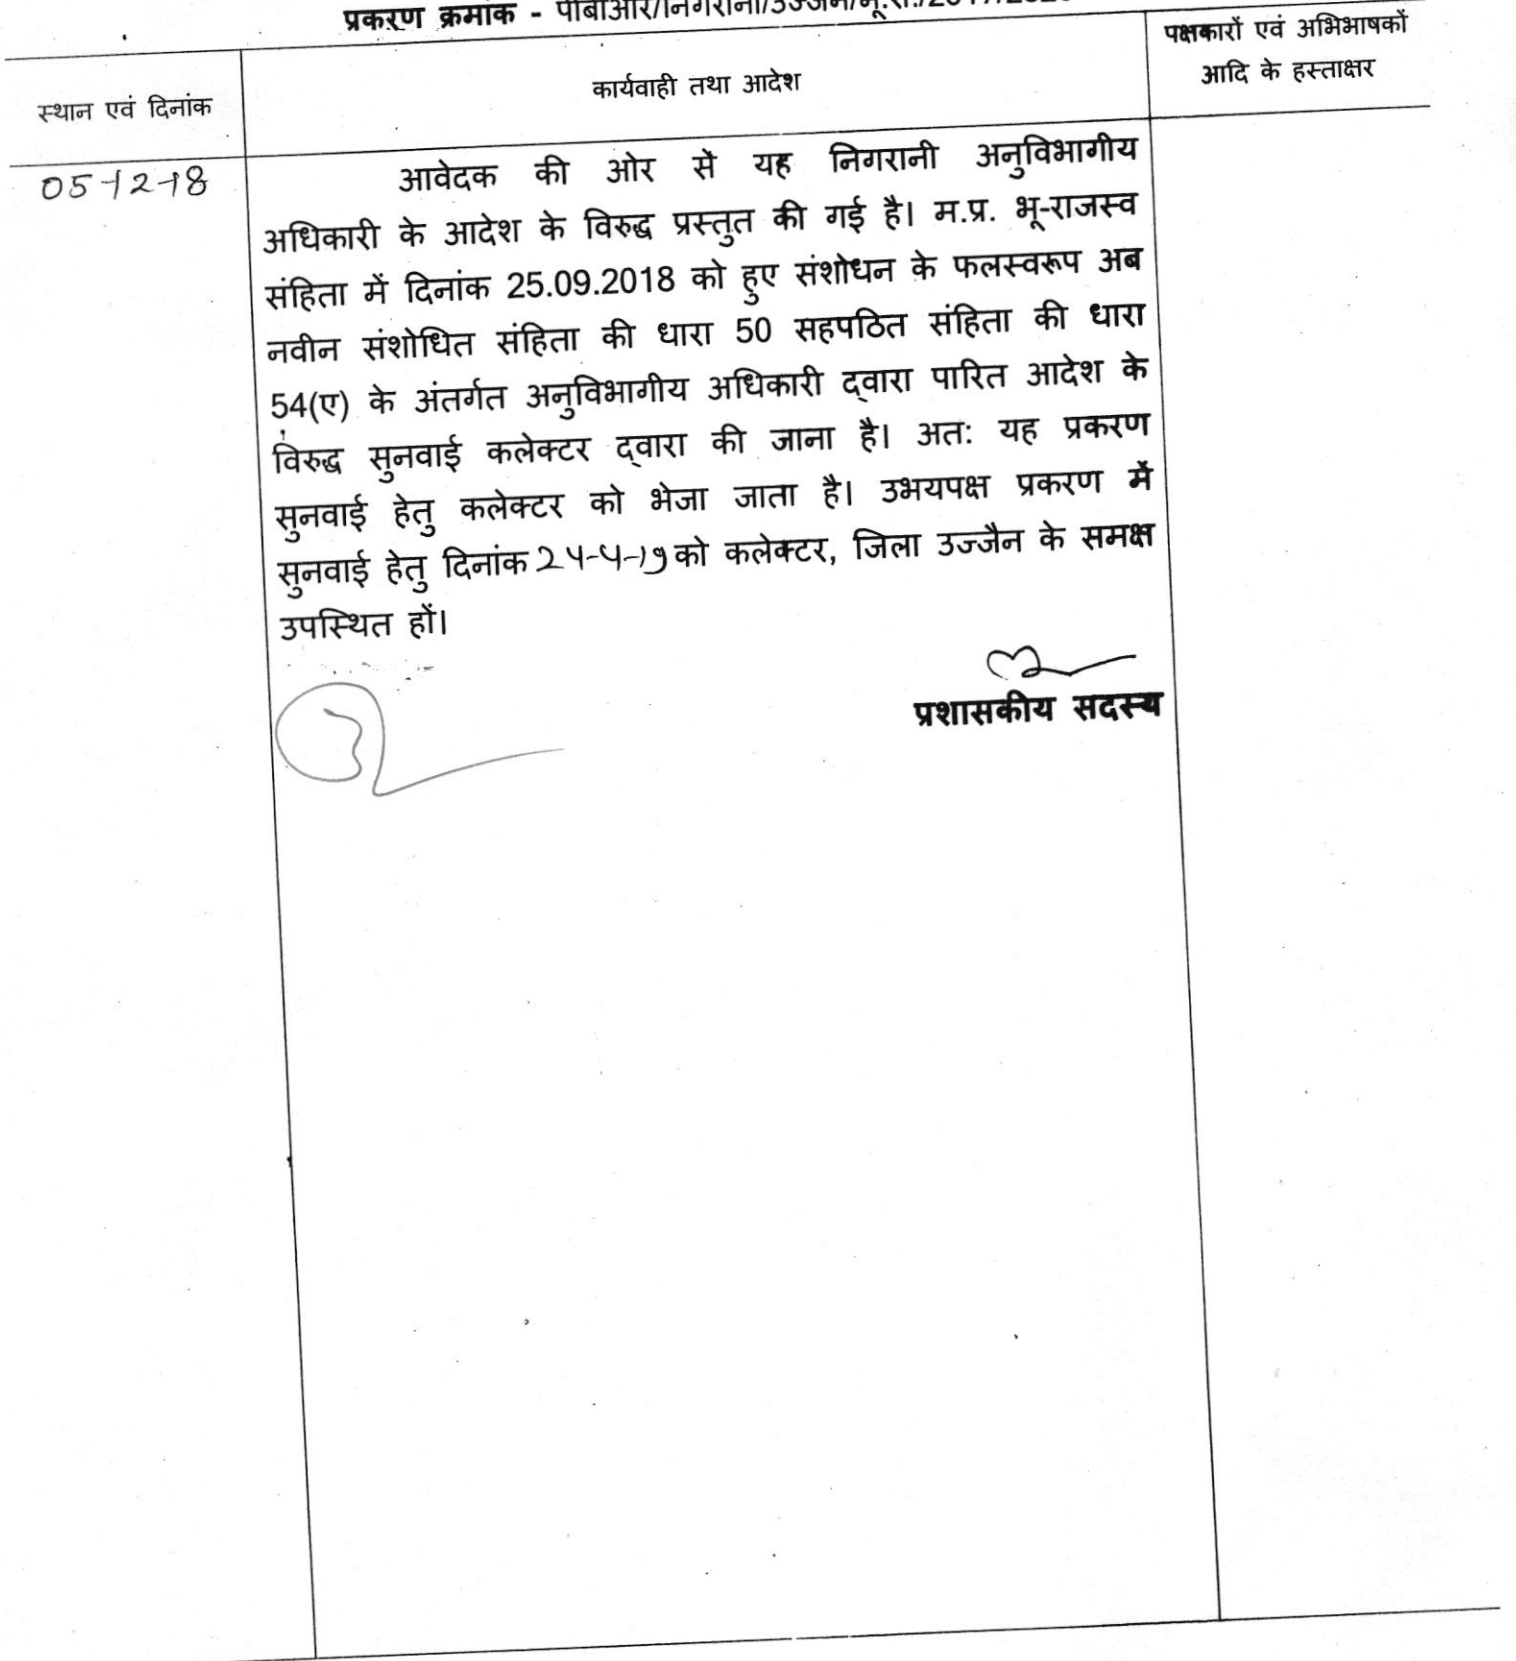 प्रकरण क्रमांक - पीबीआर/निगरानी/उज्जैन/भू.रा./2017/
पक्षकारों एवं अभिभाषकों
आदि के हस्ताक्षर
स्थान एवं दिनांक
कार्यवाही तथा आदेश
05-12-18
आवेदक की ओर से यह निगरानी अनुविभागीय
अधिकारी के आदेश के विरुद्ध प्रस्तुत की गई है। म.प्र. भू-राजस्व
संहिता में दिनांक 25.09.2018 को हुए संशोधन के फलस्वरूप अब
नवीन संशोधित संहिता की धारा 50 सहपठित संहिता की धारा
54(ए) के अंतर्गत अनुविभागीय अधिकारी द्वारा पारित आदेश के
विरुद्ध सुनवाई कलेक्टर द्वारा की जाना है। अत: यह प्रकरण
सुनवाई हेतु कलेक्टर को भेजा जाता है। उभयपक्ष प्रकरण में
सुनवाई हेतु दिनांक 24-4-19 को कलेक्टर, जिला उज्जैन के समक्ष
उपस्थित हों।
प्रशासकीय सदस्य